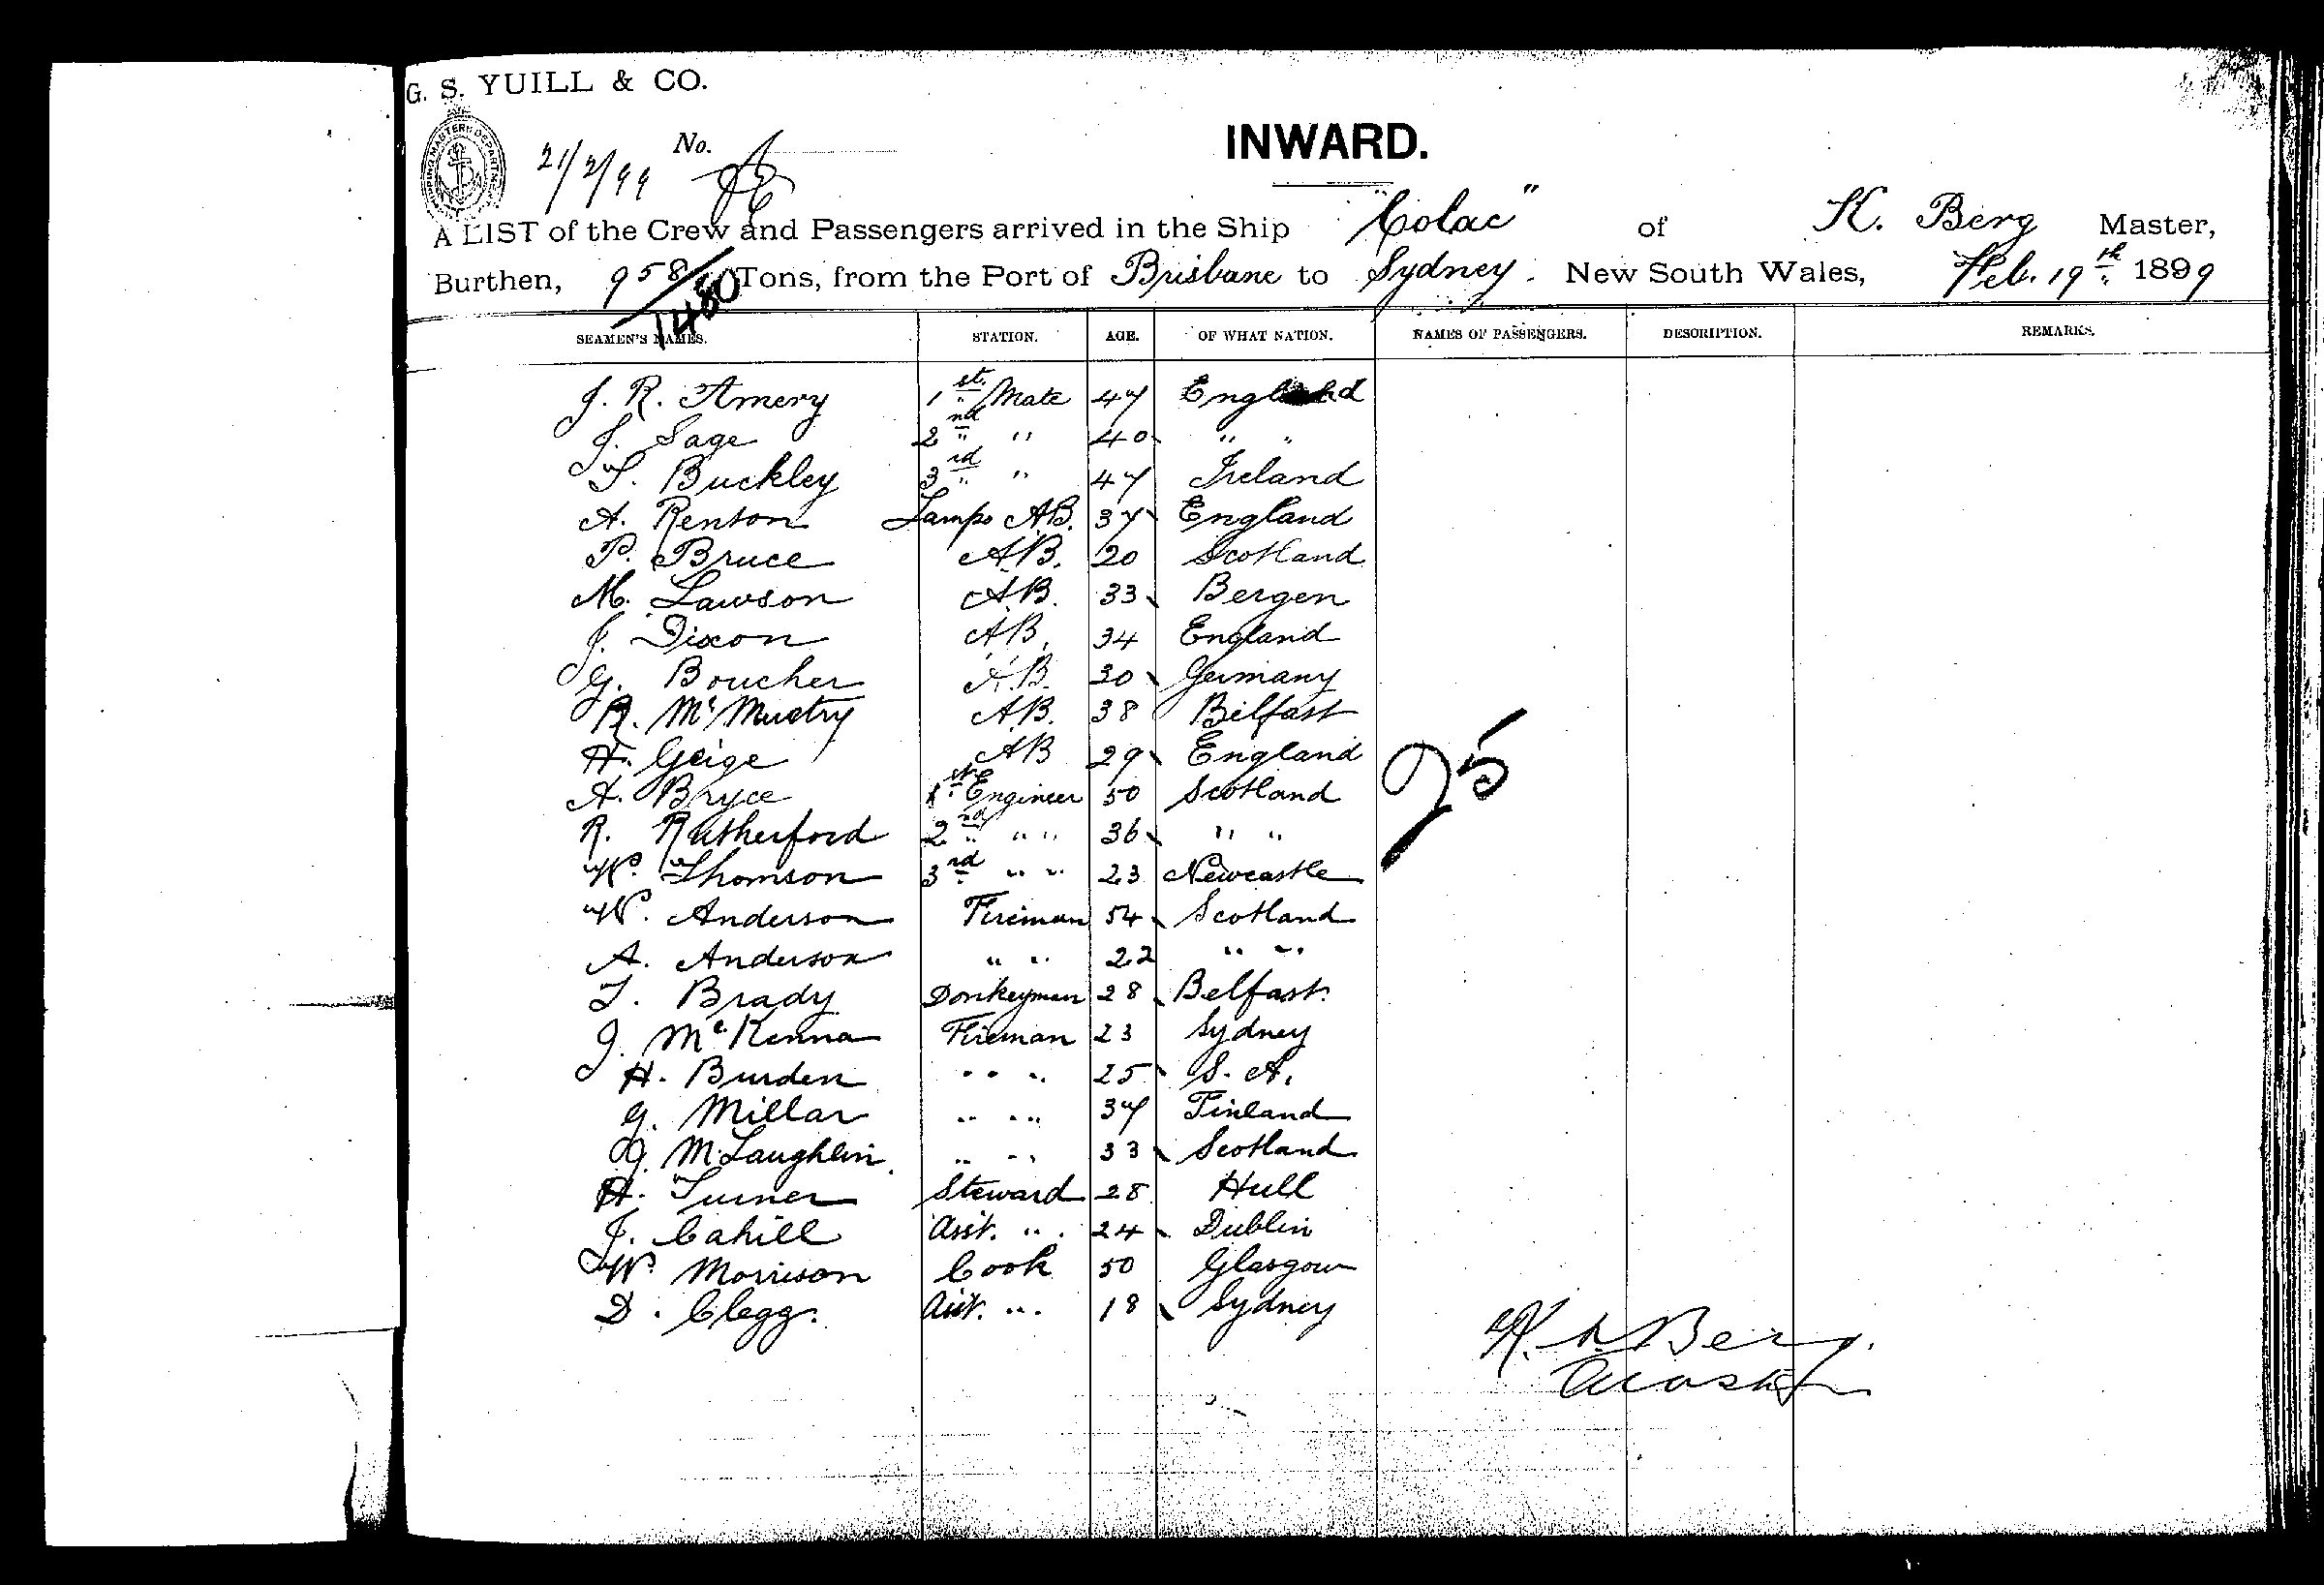 G. S. YUILL & CO.
INWARD.
21/2/99 No.
A LIST of the Crew and Passengers arrived in the Ship "Colac" of K. Berg Master,
Burthen, 958/1480 Tons, from the Port of Brisbane to Sydney. New South Wales, Feb. 19th 1899
SEAMEN'S NAMES. STATION. AGE. OF WHAT NATION. NAMES OF PASSENGERS. DESCRIPTION. REMARKS.
J. R. Amery 1st Mate 47 England
J. Sage 2nd " 40 " "
T. Buckley 3rd " 47 Ireland
A. Renton Lamps A.B. 37 England
P. Bruce A.B. 20 Scotland
M. Lawson A.B. 33 Bergen
J. Dixon A.B. 34 England
G. Boucher A.B. 30 Germany
R. McMurtry A.B. 38 Belfast
H. Geige A.B 29 England
A. Bryce 1st Engineer 50 Scotland
R. Rutherford 2nd " " 36 " "
W. Thomson 3rd " " 23 Newcastle
W. Anderson Fireman 54 Scotland
A. Anderson " " 22 " "
T. Brady Donkeyman 28 Belfast.
J. McKenna Fireman 23 Sydney
H. Burden " " 25 S. A.
G. Millar " " 37 Finland
J. McLaughlin " " 33 Scotland
H. Turner Steward 28 Hull
J. Cahill Asst. " 24 Dublin
W. Morrison Cook 50 Glasgow
D. Clegg. Asst. " 18 Sydney
25
Berg.